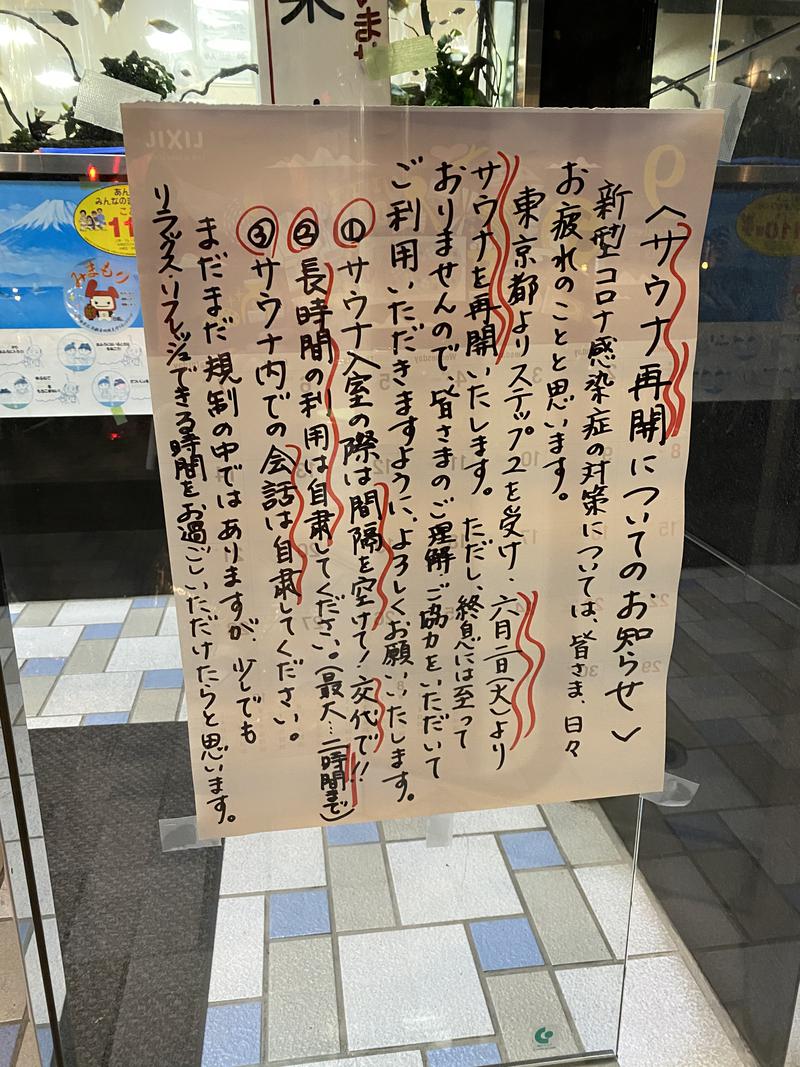 〈サウナ再開についてのお知らせ〉
新型コロナ感染症の対策については、皆さま、日々
お疲れのことと思います。
東京都よりステップ2を受け、六月二日(火)より
サウナを再開いたします。ただし、終息には至って
おりませんので、皆さまのご理解、ご協力をいただいて
ご利用いただきますように、よろしくお願いいたします。
①サウナ入室の際は間隔を空けて!交代で!!
②長時間の利用は自粛してください。(最大…二時間まで)
③サウナ内での会話は自粛してください。
まだまだ規制の中ではありますが、少しでも
リラックス・リフレッシュできる時間をお過ごしいただけたらと思います。
LIXIL
9
みまもニン